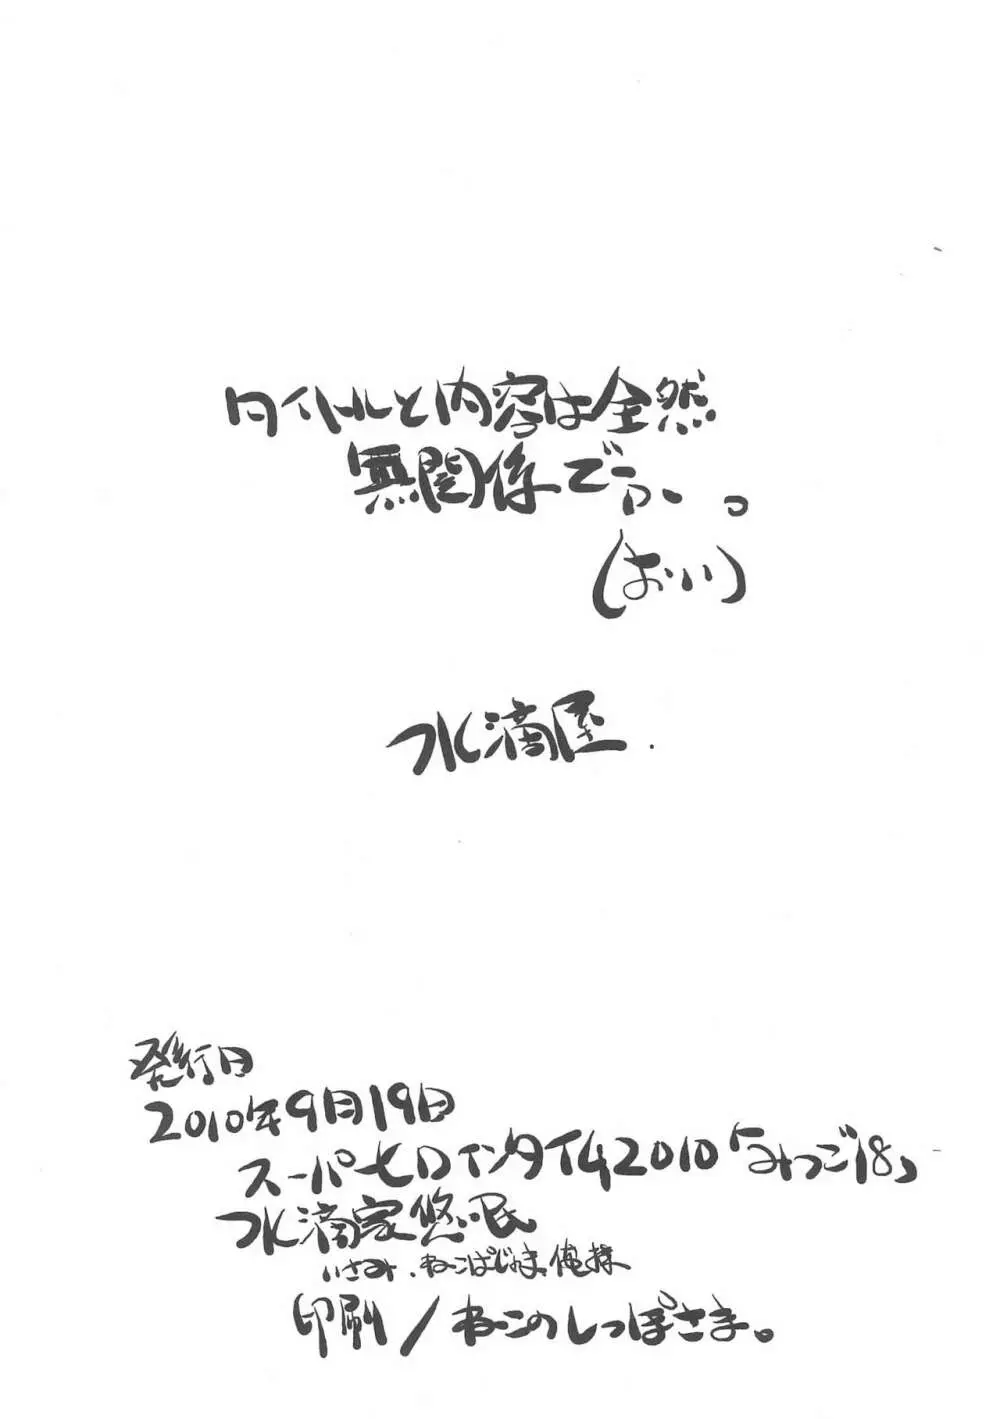 タイトルと内容は全然
無関係でっす。
(おい)
水滴屋.
発行日
2010年9月19日
スーパーヒロインタイム2010「みつご18」
水滴家悠眠
いさみ、ねこぱじゃま、俺様
印刷/ねこのしっぽさま。